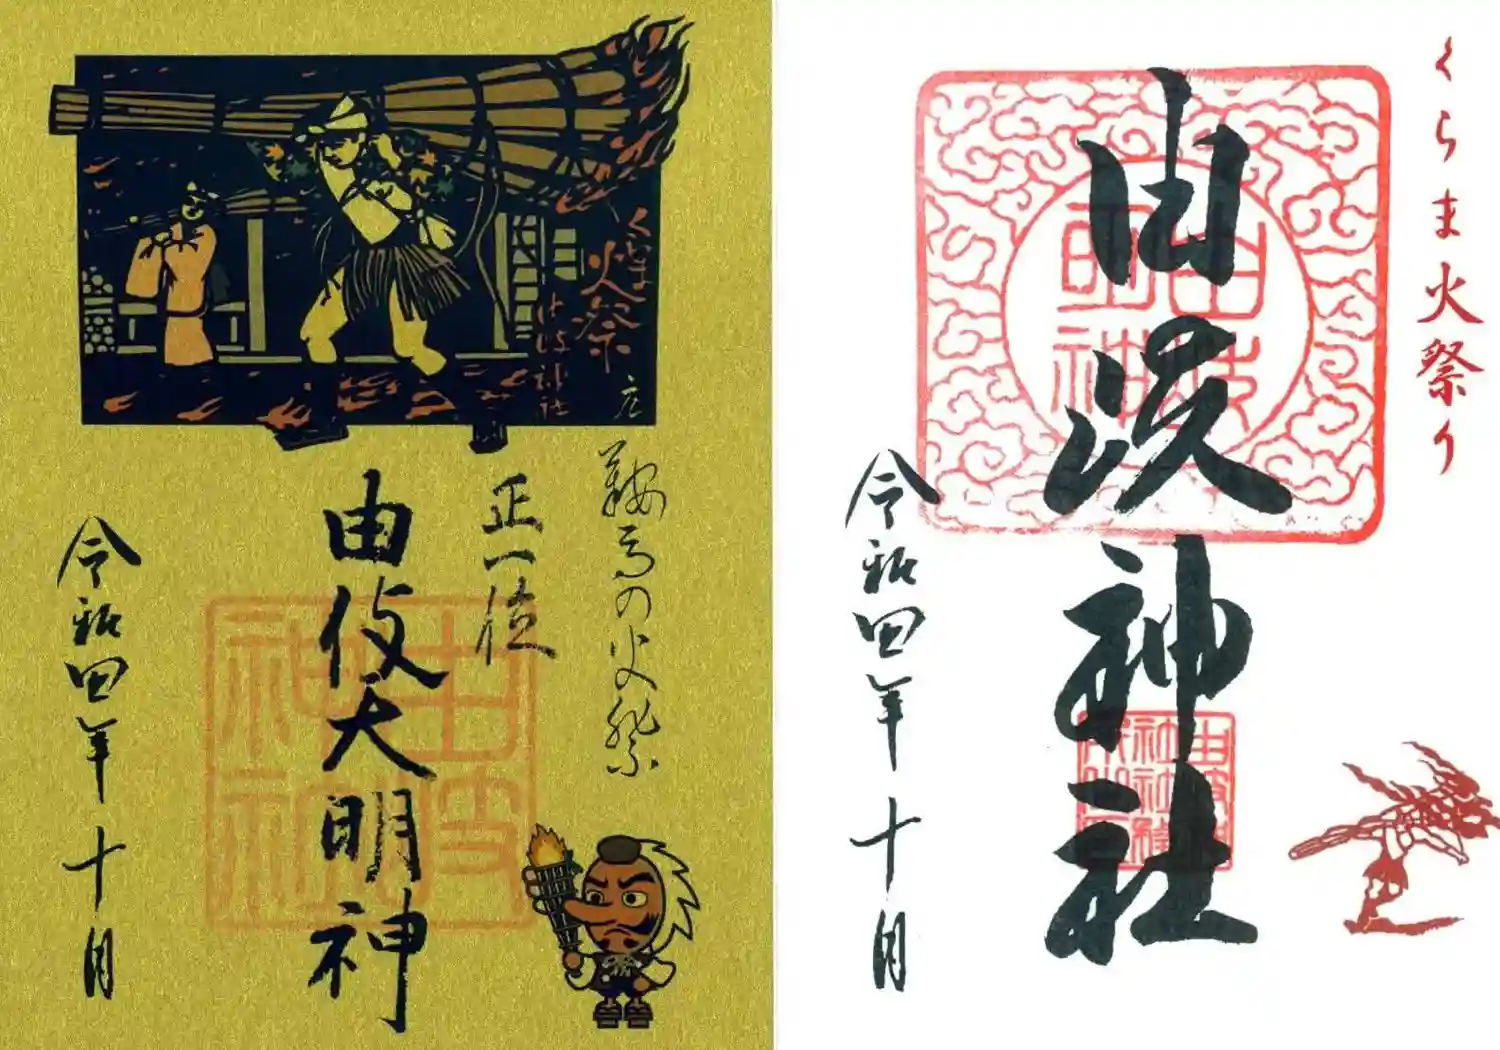 くらま
火祭
神社
鞍馬の火祭
正一位
由伎大明神
令和四年十月
くらま火祭り
由岐神社
令和四年十月
由岐
明神